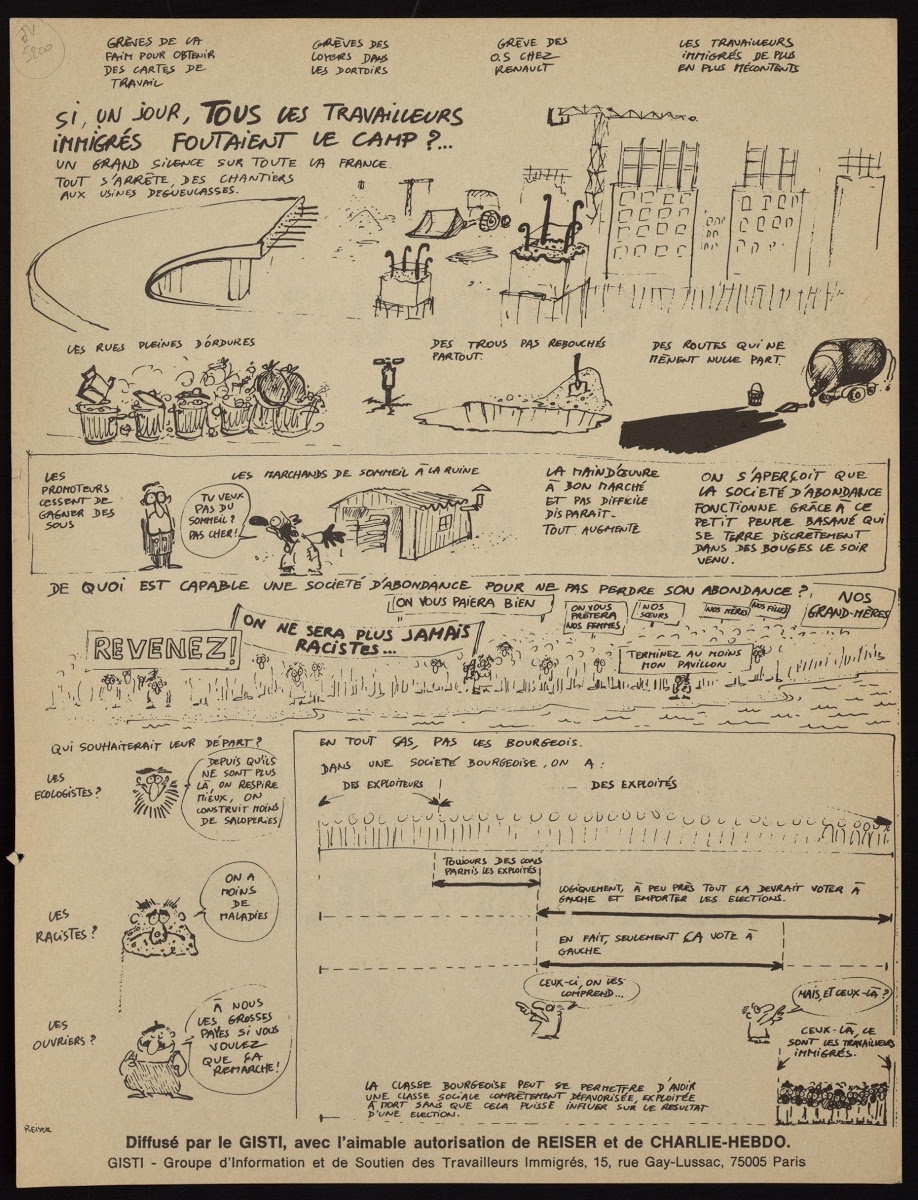 JV
5200
GRÈVES DE LA
FAIM POUR OBTENIR
DES CARTES DE
TRAVAIL
GRÈVES DES
LOYERS DANS
LES DORTOIRS
GRÈVE DES
O.S CHEZ
RENAULT
LES TRAVAILLEURS
IMMIGRÉS DE PLUS
EN PLUS MÉCONTENTS
SI, UN JOUR, TOUS LES TRAVAILLEURS
IMMIGRÉS FOUTAIENT LE CAMP ?...
UN GRAND SILENCE SUR TOUTE LA FRANCE.
TOUT S'ARRÊTE, DES CHANTIERS
AUX USINES DÉGUEULASSES.
LES RUES PLEINES D'ORDURES
DES TROUS PAS REBOUCHÉS
PARTOUT.
DES ROUTES QUI NE
MÈNENT NULLE PART.
LES
PROMOTEURS
CESSENT DE
GAGNER DES
SOUS
LES MARCHANDS DE SOMMEIL À LA RUINE
TU VEUX
PAS DU
SOMMEIL ?
PAS CHER !
LA MAIN D'ŒUVRE
À BON MARCHÉ
ET PAS DIFFICILE
DISPARAIT_
TOUT AUGMENTE
ON S'APERÇOIT QUE
LA SOCIETÉ D'ABONDANCE
FONCTIONNE GRÂCE À CE
PETIT PEUPLE BASANÉ QUI
SE TERRE DISCRÈTEMENT
DANS DES BOUGES LE SOIR
VENU.
DE QUOI EST CAPABLE UNE SOCIETÉ D'ABONDANCE POUR NE PAS PERDRE SON ABONDANCE ?
REVENEZ !
ON NE SERA PLUS JAMAIS
RACISTES...
ON VOUS PAIERA BIEN
ON VOUS
PRÊTERA
NOS FEMMES
NOS
SŒURS
NOS MÈRES
NOS FILLES
NOS
GRAND-MÈRES
TERMINEZ AU MOINS
MON PAVILLON
QUI SOUHAITERAIT LEUR DÉPART ?
LES
ECOLOGISTES ?
DEPUIS QU'ILS
NE SONT PLUS
LÀ, ON RESPIRE
MIEUX, ON
CONSTRUIT MOINS
DE SALOPERIES
LES
RACISTES ?
ON A
MOINS
DE
MALADIES
LES
OUVRIERS ?
À NOUS
LES GROSSES
PAYES SI VOUS
VOULEZ
QUE ÇA
REMARCHE !
EN TOUT CAS, PAS LES BOURGEOIS.
DANS UNE SOCIETÉ BOURGEOISE, ON A :
DES EXPLOITEURS
DES EXPLOITÉS
TOUJOURS DES CONS
PARMIS LES EXPLOITÉS
LOGIQUEMENT, À PEU PRÈS TOUT ÇA DEVRAIT VOTER À
GAUCHE ET EMPORTER LES ELECTIONS.
EN FAIT, SEULEMENT ÇA VOTE À
GAUCHE
CEUX-CI, ON LES
COMPREND...
MAIS, ET CEUX-LÀ ?
CEUX-LÀ, CE
SONT LES TRAVAILLEURS
IMMIGRÉS.
LA CLASSE BOURGEOISE PEUT SE PERMETTRE D'AVOIR
UNE CLASSE SOCIALE COMPLÈTEMENT DÉFAVORISÉE, EXPLOITÉE
À MORT SANS QUE CELA PUISSE INFLUER SUR LE RESULTAT
D'UNE ELECTION.
REISER
Diffusé par le GISTI, avec l'aimable autorisation de REISER et de CHARLIE-HEBDO.
GISTI - Groupe d'Information et de Soutien des Travailleurs Immigrés, 15, rue Gay-Lussac, 75005 Paris